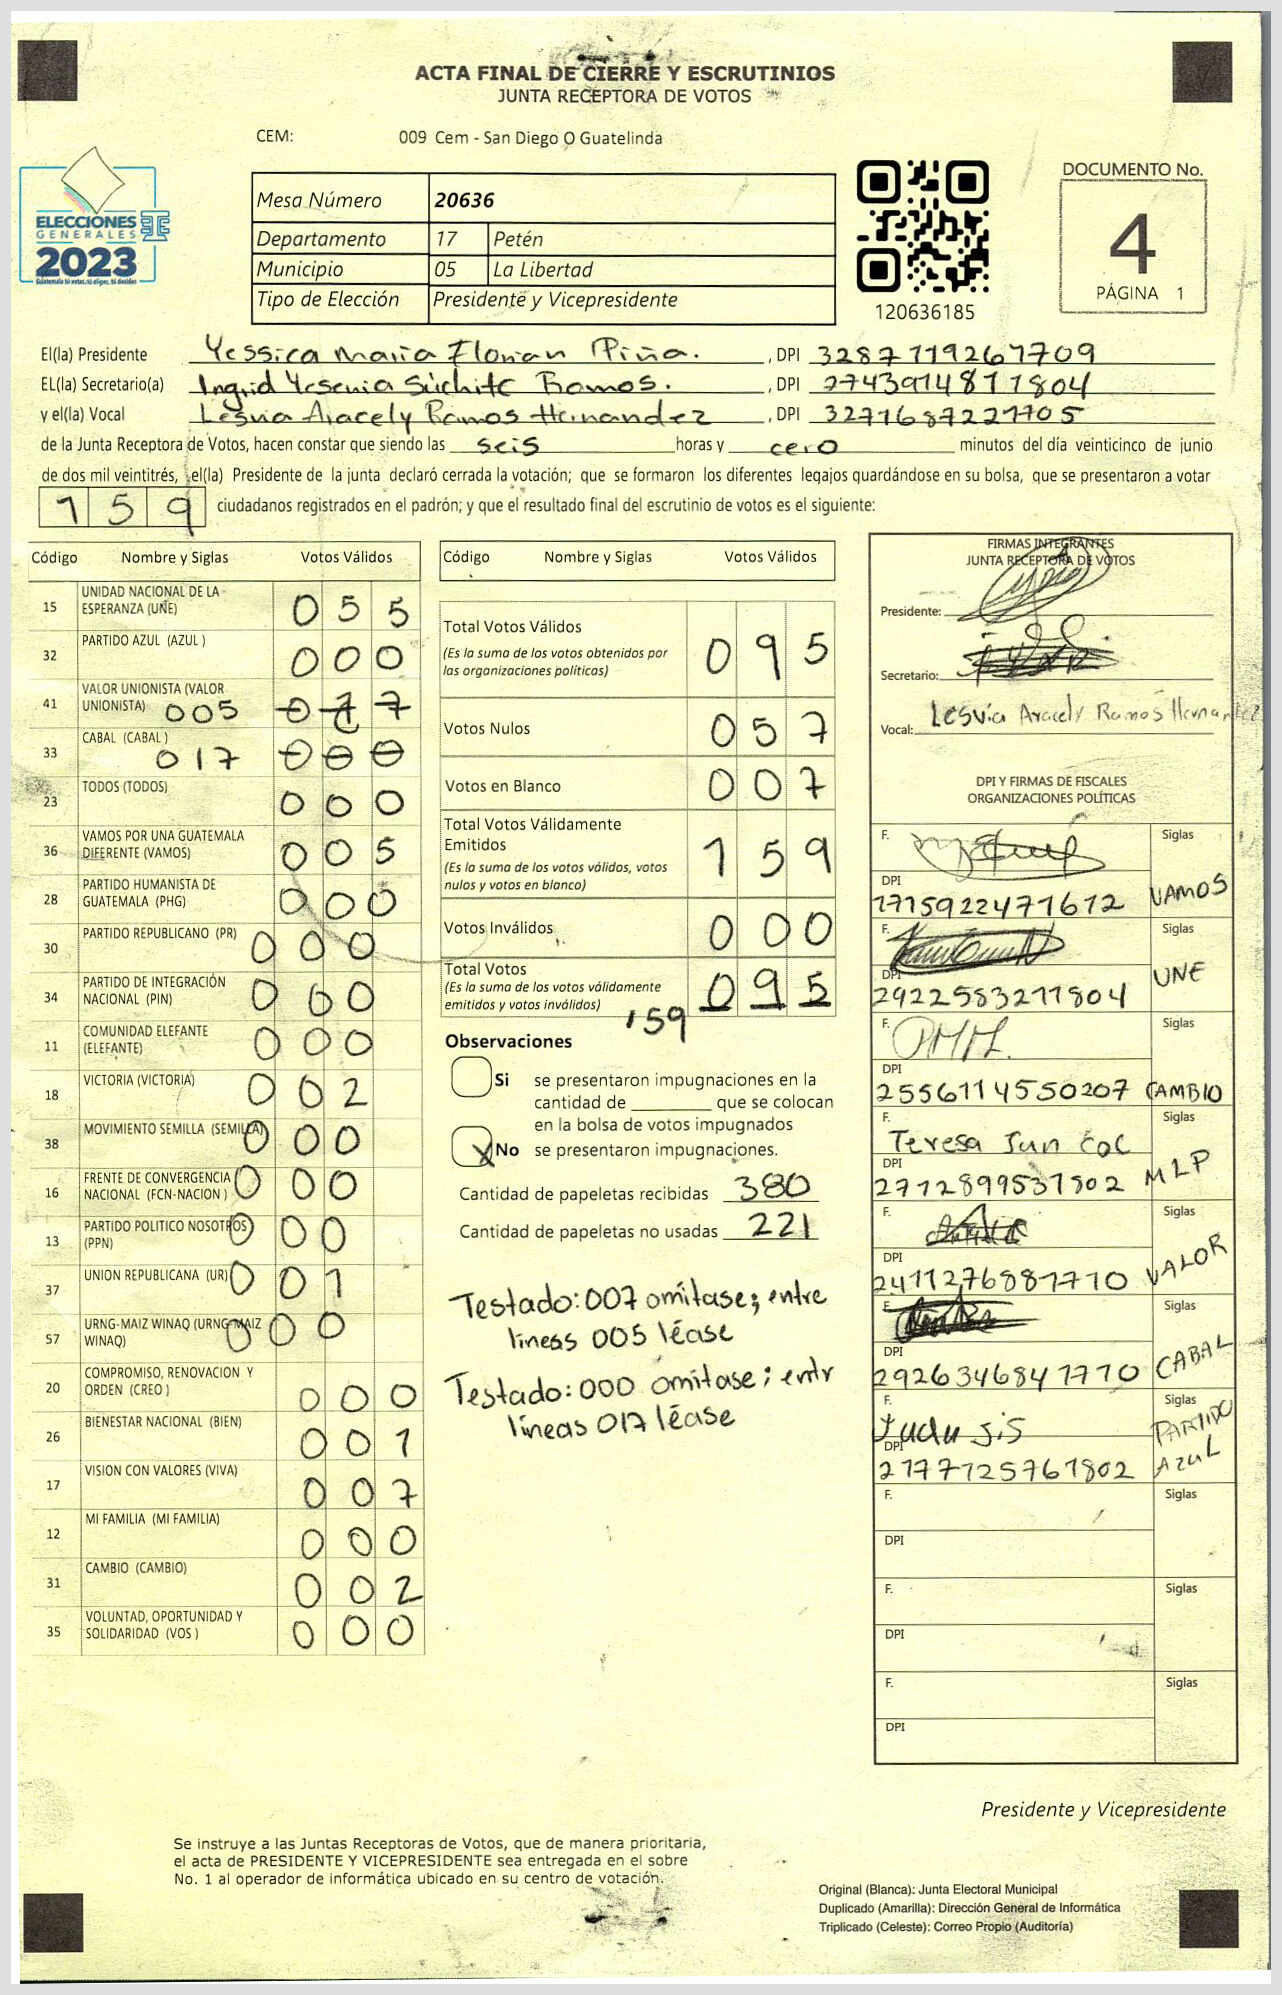 ACTA FINAL DE CIERRE Y ESCRUTINIOS
JUNTA RECEPTORA DE VOTOS
CEM: 009 Cem - San Diego O Guatelinda
ELECCIONES
GENERALES
2023
Guatemala tú votas, tú eliges, tú decides
Mesa Número 20636
Departamento 17 Petén
Municipio 05 La Libertad
Tipo de Elección Presidente y Vicepresidente
120636185
DOCUMENTO No.
4
PÁGINA 1
El(la) Presidente Yessica Maria Florian Piña. , DPI 3287119267709
EL(la) Secretario(a) Ingrid Yesenia Súchite Ramos. , DPI 2743914811804
y el(la) Vocal Lesvia Aracely Ramos Hernandez , DPI 3271687221705
de la Junta Receptora de Votos, hacen constar que siendo las seis horas y cero minutos del día veinticinco de junio
de dos mil veintitrés, el(la) Presidente de la junta declaró cerrada la votación; que se formaron los diferentes legajos quardándose en su bolsa, que se presentaron a votar
159 ciudadanos registrados en el padrón; y que el resultado final del escrutinio de votos es el siguiente:
Código Nombre y Siglas Votos Válidos
15 UNIDAD NACIONAL DE LA ESPERANZA (UNE) 055
32 PARTIDO AZUL (AZUL ) 000
41 VALOR UNIONISTA (VALOR UNIONISTA) 005
33 CABAL (CABAL ) 017 000
23 TODOS (TODOS) 000
36 VAMOS POR UNA GUATEMALA DIFERENTE (VAMOS) 005
28 PARTIDO HUMANISTA DE GUATEMALA (PHG) 000
30 PARTIDO REPUBLICANO (PR) 000
34 PARTIDO DE INTEGRACIÓN NACIONAL (PIN) 000
11 COMUNIDAD ELEFANTE (ELEFANTE) 000
18 VICTORIA (VICTORIA) 002
38 MOVIMIENTO SEMILLA (SEMILLA) 000
16 FRENTE DE CONVERGENCIA NACIONAL (FCN-NACION ) 000
13 PARTIDO POLITICO NOSOTROS (PPN) 000
37 UNION REPUBLICANA (UR) 001
57 URNG-MAIZ WINAQ (URNG-MAIZ WINAQ) 000
20 COMPROMISO, RENOVACION Y ORDEN (CREO ) 000
26 BIENESTAR NACIONAL (BIEN) 001
17 VISION CON VALORES (VIVA) 007
12 MI FAMILIA (MI FAMILIA) 000
31 CAMBIO (CAMBIO) 002
35 VOLUNTAD, OPORTUNIDAD Y SOLIDARIDAD (VOS ) 000
Código Nombre y Siglas Votos Válidos
Total Votos Válidos 095
(Es la suma de los votos obtenidos por
las organizaciones políticas)
Votos Nulos 057
Votos en Blanco 007
Total Votos Válidamente
Emitidos 159
(Es la suma de los votos válidos, votos
nulos y votos en blanco)
Votos Inválidos 000
Total Votos
(Es la suma de los votos válidamente
emitidos y votos inválidos) 095
159
Observaciones
Si se presentaron impugnaciones en la
cantidad de ________ que se colocan
en la bolsa de votos impugnados
X No se presentaron impugnaciones.
Cantidad de papeletas recibidas 380
Cantidad de papeletas no usadas 221
Testado: 007 omitase; entre
lineas 005 léase
Testado: 000 omitase; entr
líneas 017 léase
FIRMAS INTEGRANTES
JUNTA RECEPTORA DE VOTOS
Presidente:
Secretario:
Vocal: Lesvia Aracely Ramos Hernandez
DPI Y FIRMAS DE FISCALES
ORGANIZACIONES POLÍTICAS
F. Siglas
DPI
1715922471612 VAMOS
F. Siglas
DPI
2922583211804 UNE
F. Siglas
DPI
2556114550207 CAMBIO
F. Teresa Jun Coc Siglas
DPI
2712899531802 MLP
F. Siglas
DPI
2411276881710 VALOR
F. Siglas
DPI
2926346841710 CABAL
F. Siglas
DPI
2177125761802 PARTIDO AZUL
F. Siglas
DPI
F. Siglas
DPI
F. Siglas
DPI
Presidente y Vicepresidente
Se instruye a las Juntas Receptoras de Votos, que de manera prioritaria,
el acta de PRESIDENTE Y VICEPRESIDENTE sea entregada en el sobre
No. 1 al operador de informática ubicado en su centro de votación.
Original (Blanca): Junta Electoral Municipal
Duplicado (Amarilla): Dirección General de Informática
Triplicado (Celeste): Correo Propio (Auditoría)